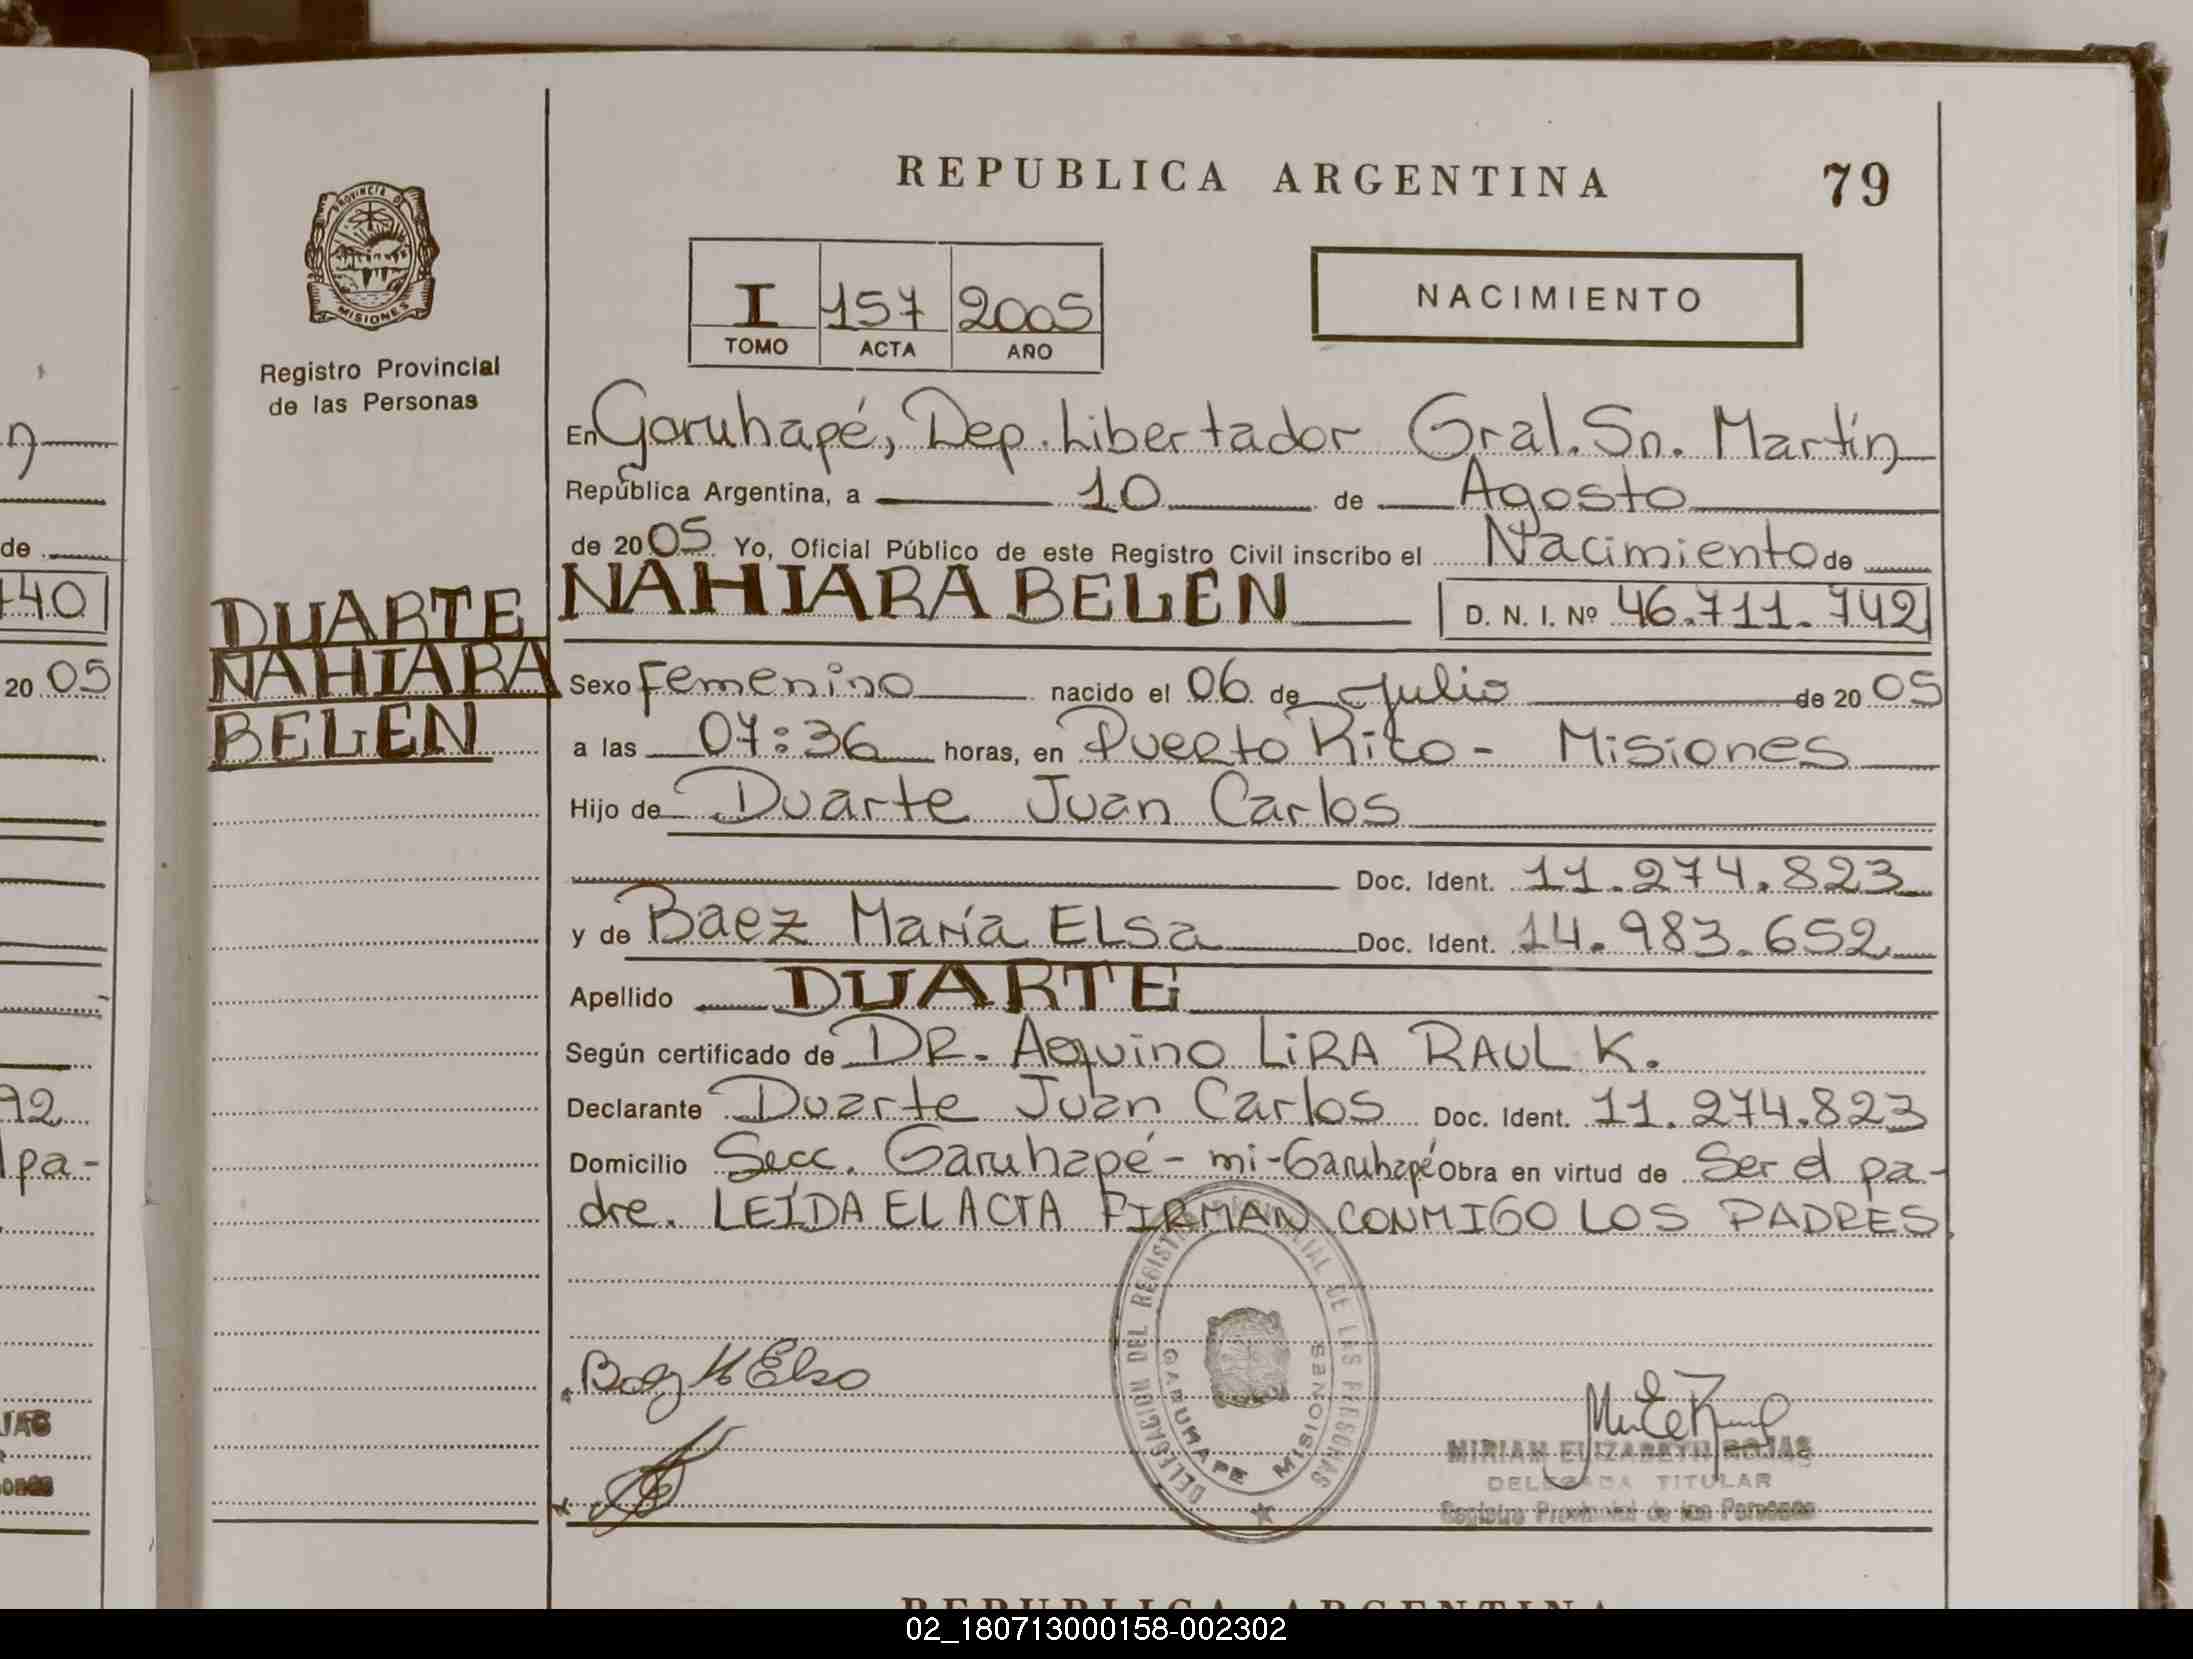 REPUBLICA ARGENTINA
79
PROVINCIA DE MISIONES
Registro Provincial
de las Personas
I 157 2005
TOMO ACTA AÑO
NACIMIENTO
En Garuhapé, Dep. Libertador Gral. Sn. Martín
República Argentina, a 10 de Agosto
de 2005 Yo, Oficial Público de este Registro Civil inscribo el Nacimiento de
DUARTE
NAHIARA
BELEN
NAHIARA BELEN D. N. I. Nº 46.711.742
Sexo Femenino nacido el 06 de Julio de 2005
a las 07:36 horas, en Puerto Rico - Misiones
Hijo de Duarte Juan Carlos
Doc. Ident. 11.274.823
y de Baez María Elsa Doc. Ident. 14.983.652
Apellido DUARTE
Según certificado de DR. Aquino LiRA RAUL K.
Declarante Duarte Juan Carlos Doc. Ident. 11.274.823
Domicilio Secc. Garuhapé - mi - Garuhapé Obra en virtud de Ser el pa-
dre. LEÍDA EL ACTA FIRMAN CONMIGO LOS PADRES
DELEGACION DEL REGISTRO PROVINCIAL DE LAS PERSONAS
GARUHAPE MISIONES
Baez M Elsa
MIRIAM ELIZABETH ROJAS
DELEGADA TITULAR
Registro Provincial de las Personas
REPUBLICA ARGENTINA
n
de
740
2005
92
pa-
02_180713000158-002302